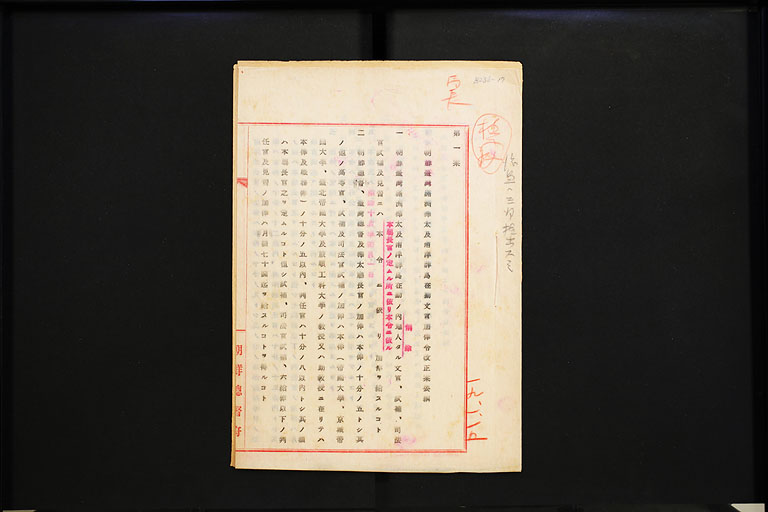 極秘
第一案
朝鮮臺灣滿洲樺太及南洋群島在勤文官加俸令改正案要綱
一 朝鮮臺灣滿洲樺太及南洋群島在勤ノ內地人タル文官、試補、司法
官試補及見習ニハ 本令ニ依リ 加俸ヲ給スルコト
削除
本屬長官ノ定ムル所ニ依リ本令ニ依ル
二 朝鮮總督、臺灣總督及樺太廳長官ノ加俸ハ本俸ノ十分ノ五トシ其
ノ他ノ高等官、試補及司法官試補ノ加俸ハ本俸(帝國大學、京城帝
國大學、臺北帝國大學及旅順工科大學ノ敎授又ハ助敎授ニ在リテハ
本俸及職務俸)ノ十分ノ五以內、判任官ハ十分ノ八以內トシ其ノ額
ハ本屬長官之ヲ定ムルコト但シ試補、司法官試補、六級俸以下ノ判
任官及見習ノ加俸ハ月額七十圓迄ヲ給スルコトヲ得ルコト
朝鮮總督府